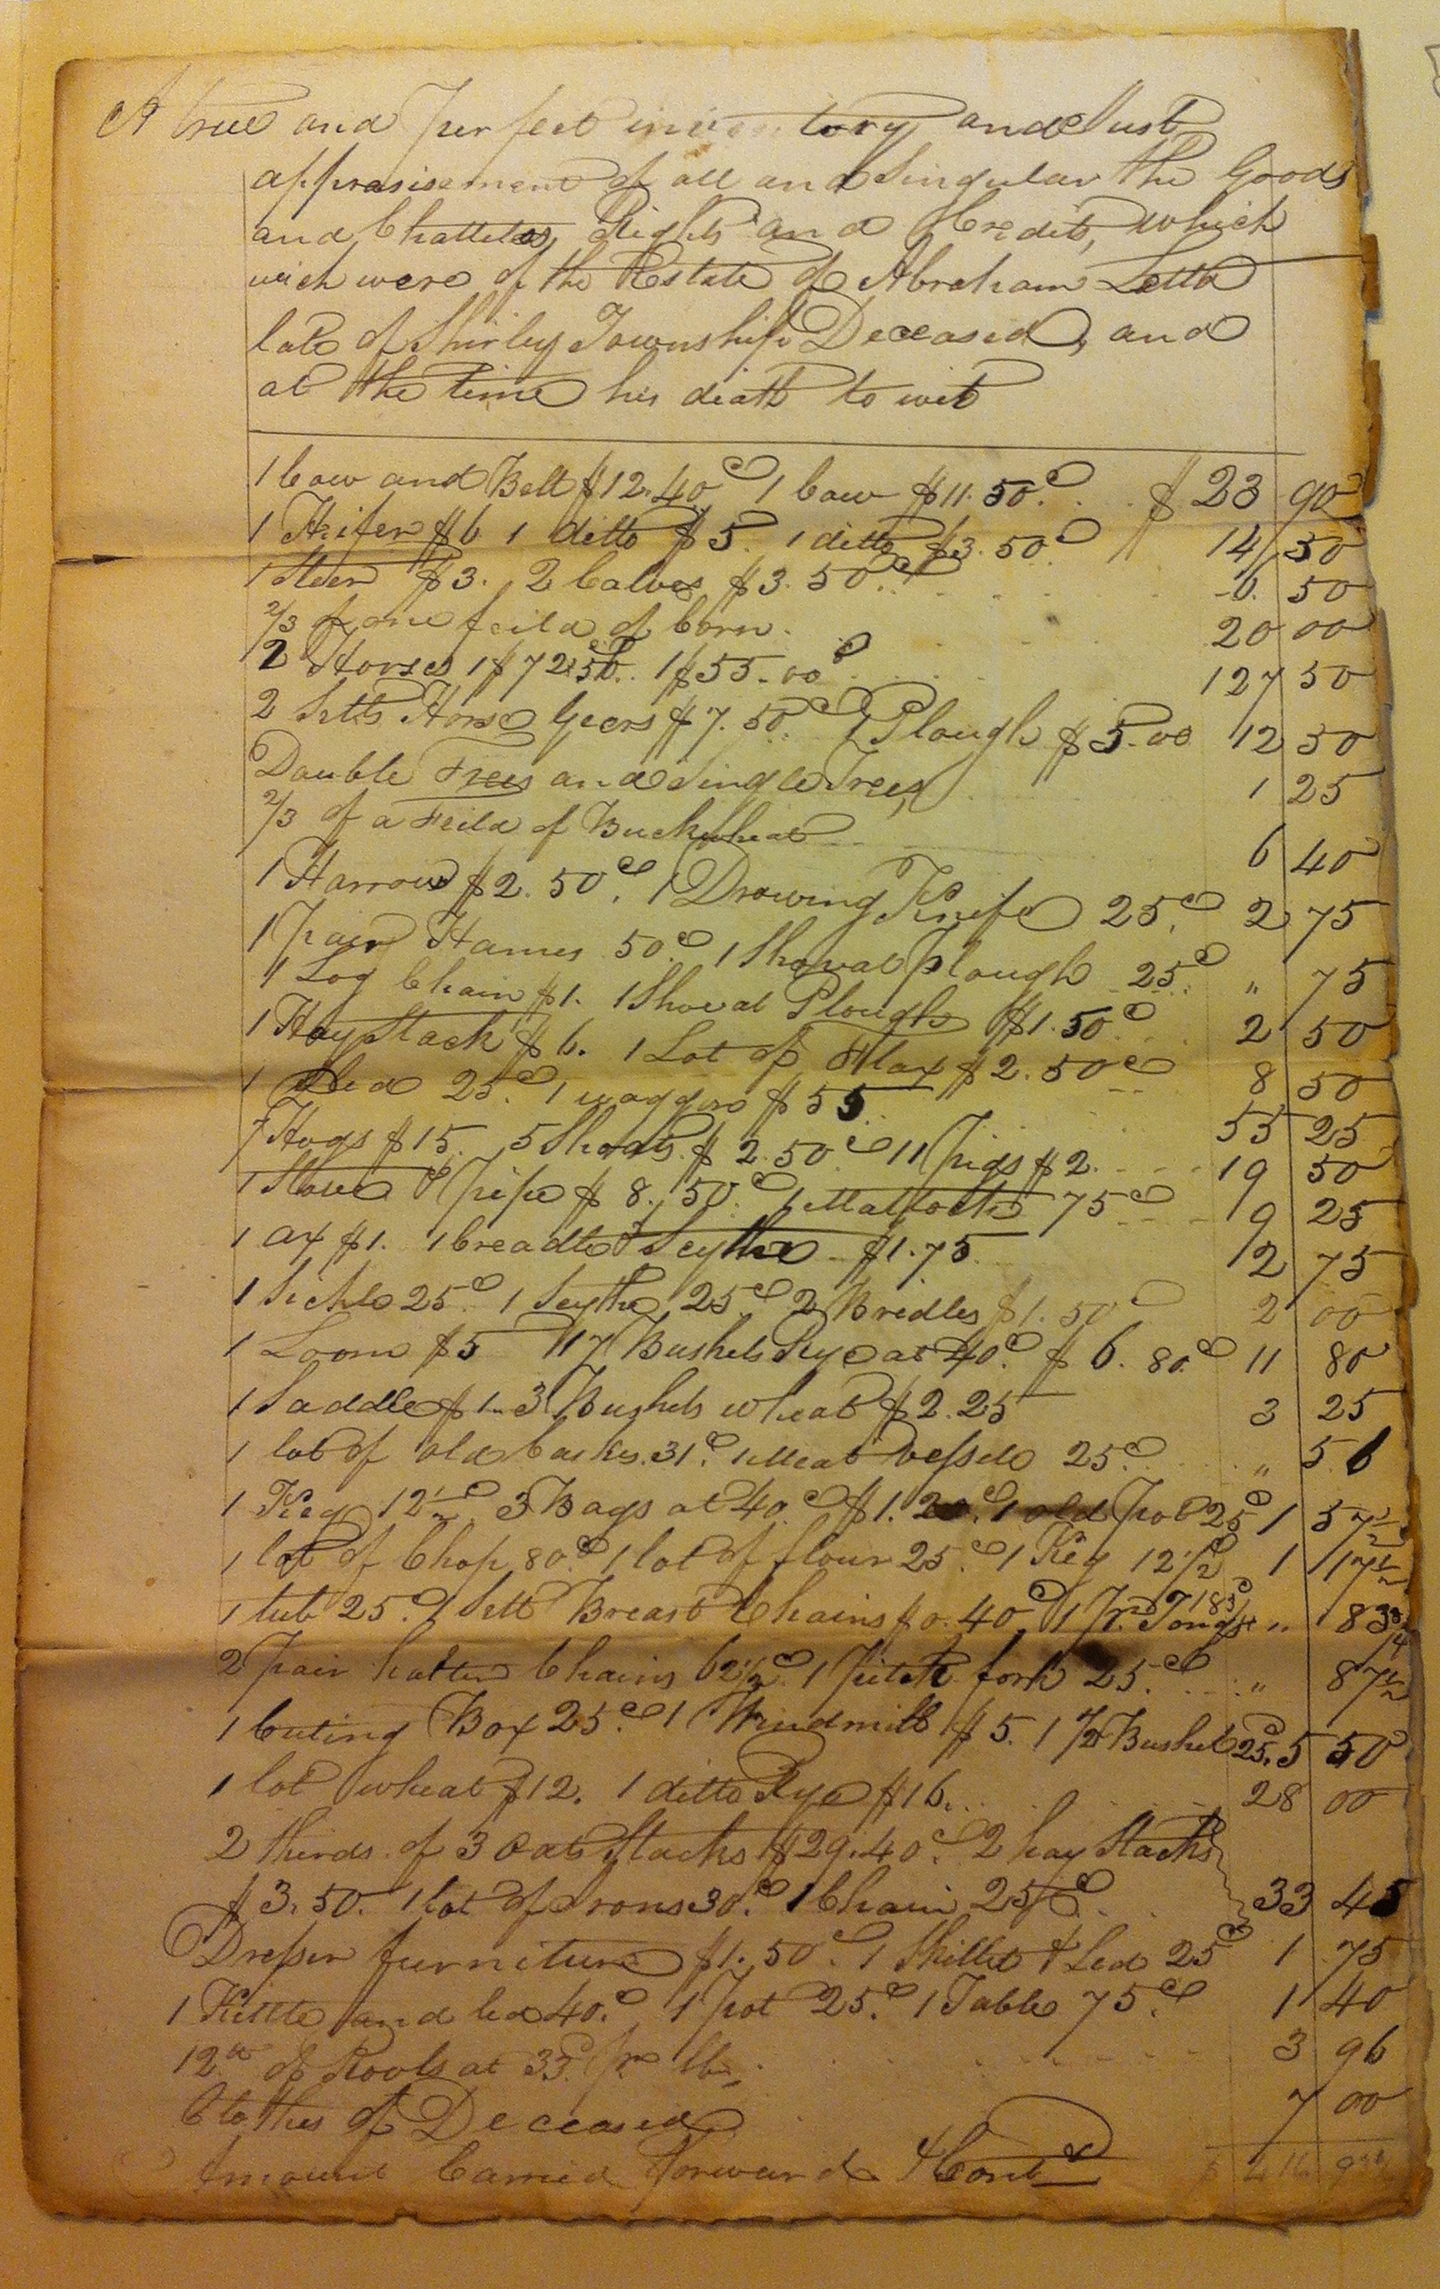 A true and Perfect inventory and Just
appraisisement of all and Singular the Goods
and Chattles, Rights and Credits, which
wich were of the Estate of Abraham
late of Shirley Township Deceased, and
at the time his death to wit
1 Cow and Bell $12.40c 1 Cow $11.50c $ 23 90
1 Heifer $6 1 ditto $5. 1 ditto $3.50c 14 50
1 Steer $3. 2 Calves $3.50c 6. 50
2/3 of one feild of Corn. 20 00
2 Horses 1 $72.50. 1 $55.00c 127 50
2 Setts Horse Geers $7.50c 1 Plough $5.00 12 50
Double Trees and Single Trees, 1 25
2/3 of a Feild of Buckwheat 6 40
1 Harrow $2.50c. 1 Drowing Knife 25c. 2 75
1 pair Hames 50c. 1 Shovat plough 25c. " 75
1 Log Chain $1. 1 Shovat Plough $1.50c 2 50
1 Hay Stack $6. 1 Lot of Flax $2.50c 8 50
1 Sled 25c. 1 waggon $55. 55 25
7 Hogs $15. 5 Shoats $2.50c 11 pigs $2. 19 50
1 Stove & Pipe $8.50c. 1 Mattock 75c 9 25
1 ax $1. 1 breadth Scythe $1.75 2 75
1 Sickle 25c. 1 Scythe 25c. 2 Bridles $1.50 2 00
1 Loom $5 17 Bushels Rye at 40c. $6.80c 11 80
1 Saddle $1. 3 Bushels wheat $2.25 3 25
1 lot of old Casks. 31c. 1 Meat vessel 25c. " 56
1 Keg 12 1/2c 3 Bags at 40.c $1.20.c 1 old pot 25c 1 57 1/2
1 lot of Chop 80.c 1 lot of flour 25.c 1 Keg 12 1/2c 1 17 1/2
1 tub 25.c 1 Sett Breast Chains $0.40c 1 Pr. Tongs 18 3/4c " 83 3/4
2 pair halter Chains 62 1/2c. 1 Pitch fork 25.c " 87 1/2
1 Cuting Box 25.c 1 Windmill $5. 1 1/2 Bushel 25c. 5 50
1 lot wheat $12. 1 ditto Rye $16. 28 00
2 thirds of 3 oat Stacks $29.40c. 2 hay Stacks
$3.50. 1 lot of Irons 30.c 1 Chain 25c. 33 45
Dresser furniture $1.50c. 1 Skillet & Led 25c 1 75
1 Kittle and led 40.c 1 pot 25.c 1 Table 75.c 1 40
12 lb of Rools at 33c. pr lb. 3 96
Clothes of Deceased 7 00
Amount Carried forward & Contd $ 416